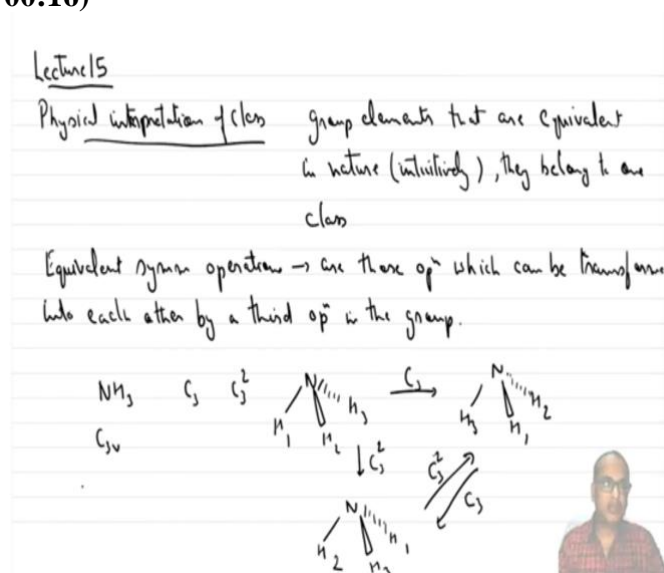 00:16)
Lecture 15
Physical interpretation of class group elements that are equivalent
in nature (intuitively), they belong to one
class
Equivalent symm operation → are those opⁿ which can be transforme
into each other by a third opⁿ in the group.
NH₃ C₃ C₃² N H₁ H₂ H₃ C₃ N H₃ H₁ H₂
C₃ᵥ C₃² C₃² C₃
N H₂ H₃ H₁